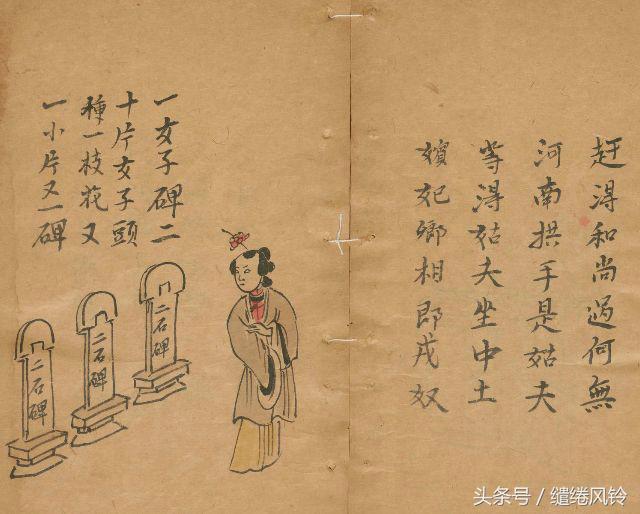 赶淂和尚過何無
河南拱手是姑夫
等淂姑夫坐中土
嬪妃鄉相即戎奴
一女子碑二
十片女子頭
種一枝花又
一小片又一碑
二石碑
二石碑
二石碑
头条号 / 缱绻风铃